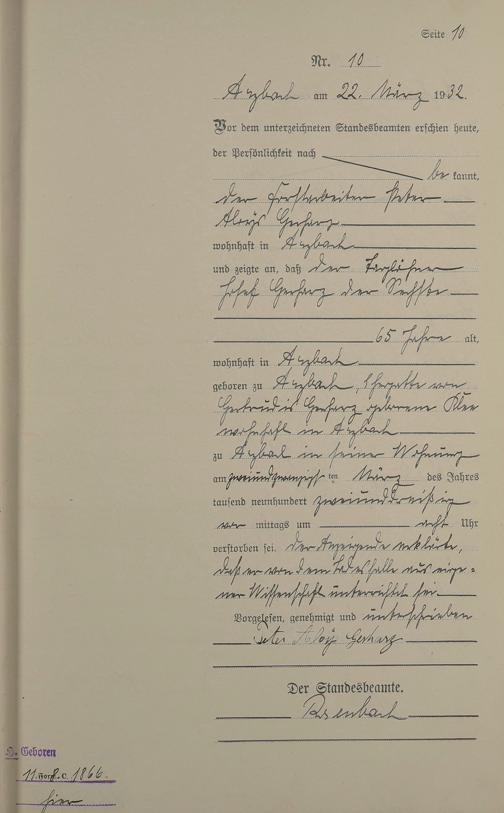 Seite 10
Nr. 10
Arzbach am 22. März 1932.
Vor dem unterzeichneten Standesbeamten erschien heute,
der Persönlichkeit nach
be kannt,
der Forstarbeiter Peter
Aloys Gerharz
wohnhaft in Arzbach
und zeigte an, daß der Taglöhner
Josef Gerharz der Sechste
65 Jahre alt,
wohnhaft in Arzbach
geboren zu Arzbach, Ehegatte von
Gertrudis Gerharz geborene Klee
wohnhaft in Arzbach
zu Arzbach in seiner Wohnung
am zweiundzwanzigsten März des Jahres
tausend neunhundert zweiunddreißig
vor mittags um acht Uhr
verstorben sei. Der Anzeigende erklärte,
daß er von dem Todesfalle aus eige-
ner Wissenschaft unterrichtet sei.
Vorgelesen, genehmigt und unterschrieben
Peter Aloys Gerharz
Der Standesbeamte.
Geboren
11. 1866.
hier